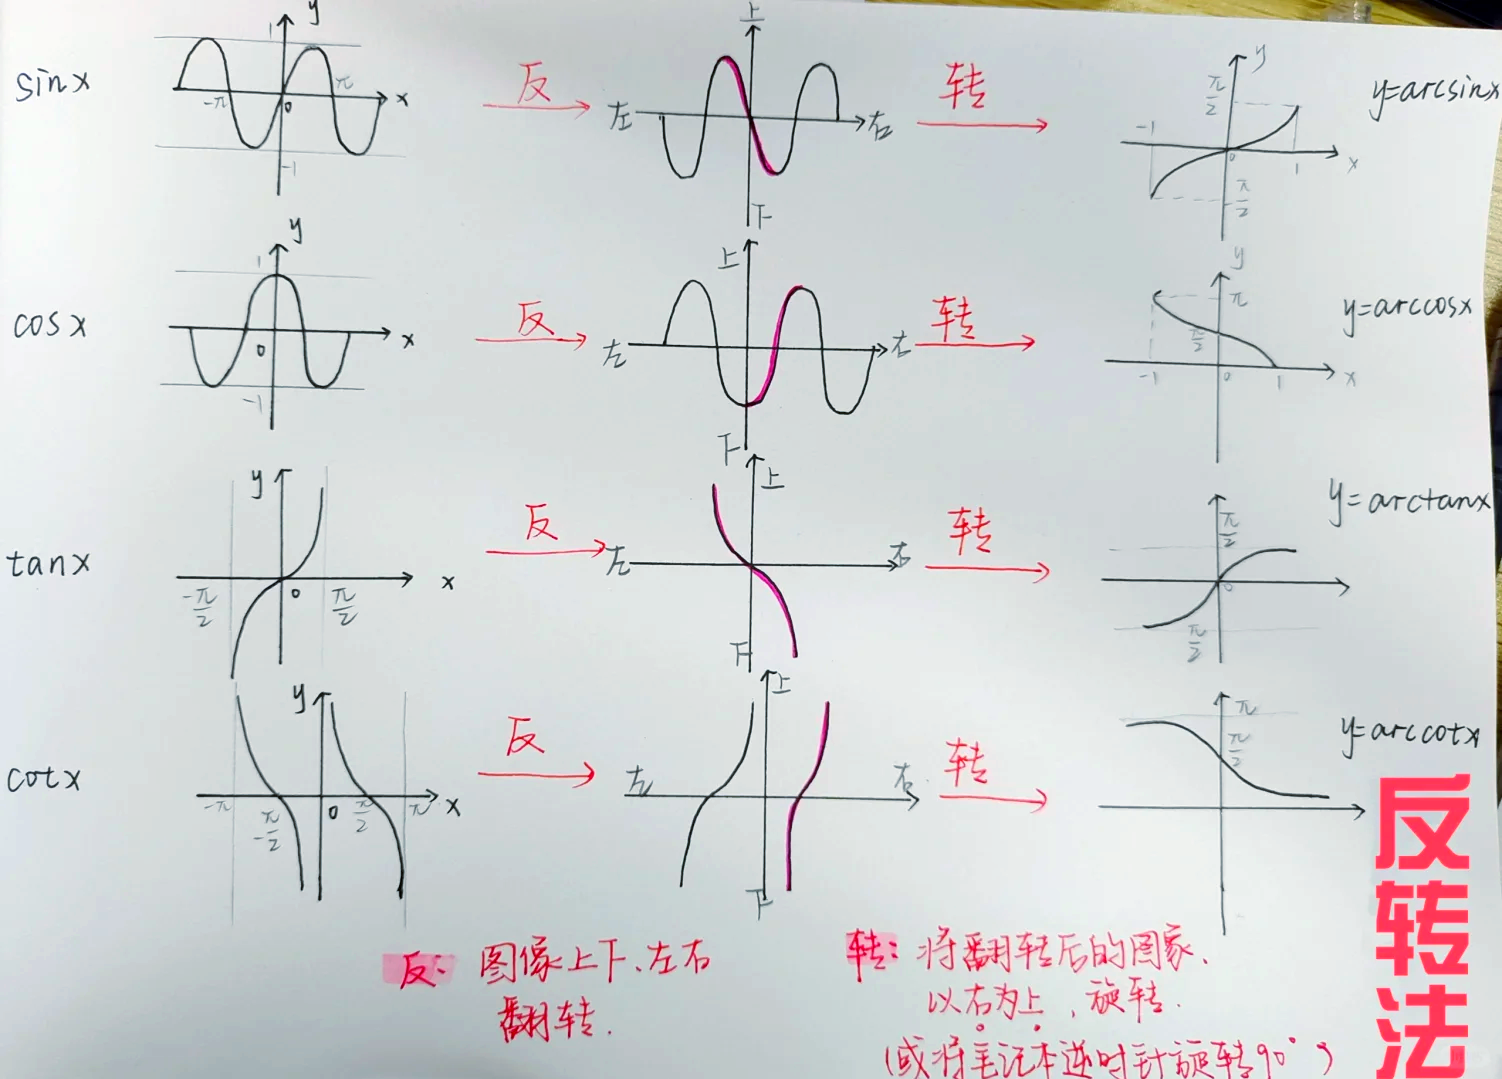 sinx
y
1
-π
0
π
x
-1
反
上
左
右
下
转
y
π/2
-1
0
1
x
π/2
y=arcsinx
cosx
y
1
0
x
-1
反
上
左
右
下
转
y
π
π/2
-1
0
1
x
y=arccosx
tanx
y
-π/2
0
π/2
x
反
上
左
右
下
转
π/2
0
π/2
y=arctanx
cotx
y
-π
-π/2
0
π/2
π
x
反
上
左
右
下
转
π
π/2
y=arccotx
反: 图像上下、左右
翻转.
转: 将翻转后的图象、
以右为上，旋转.
(或将笔记本逆时针旋转90°)
反转法